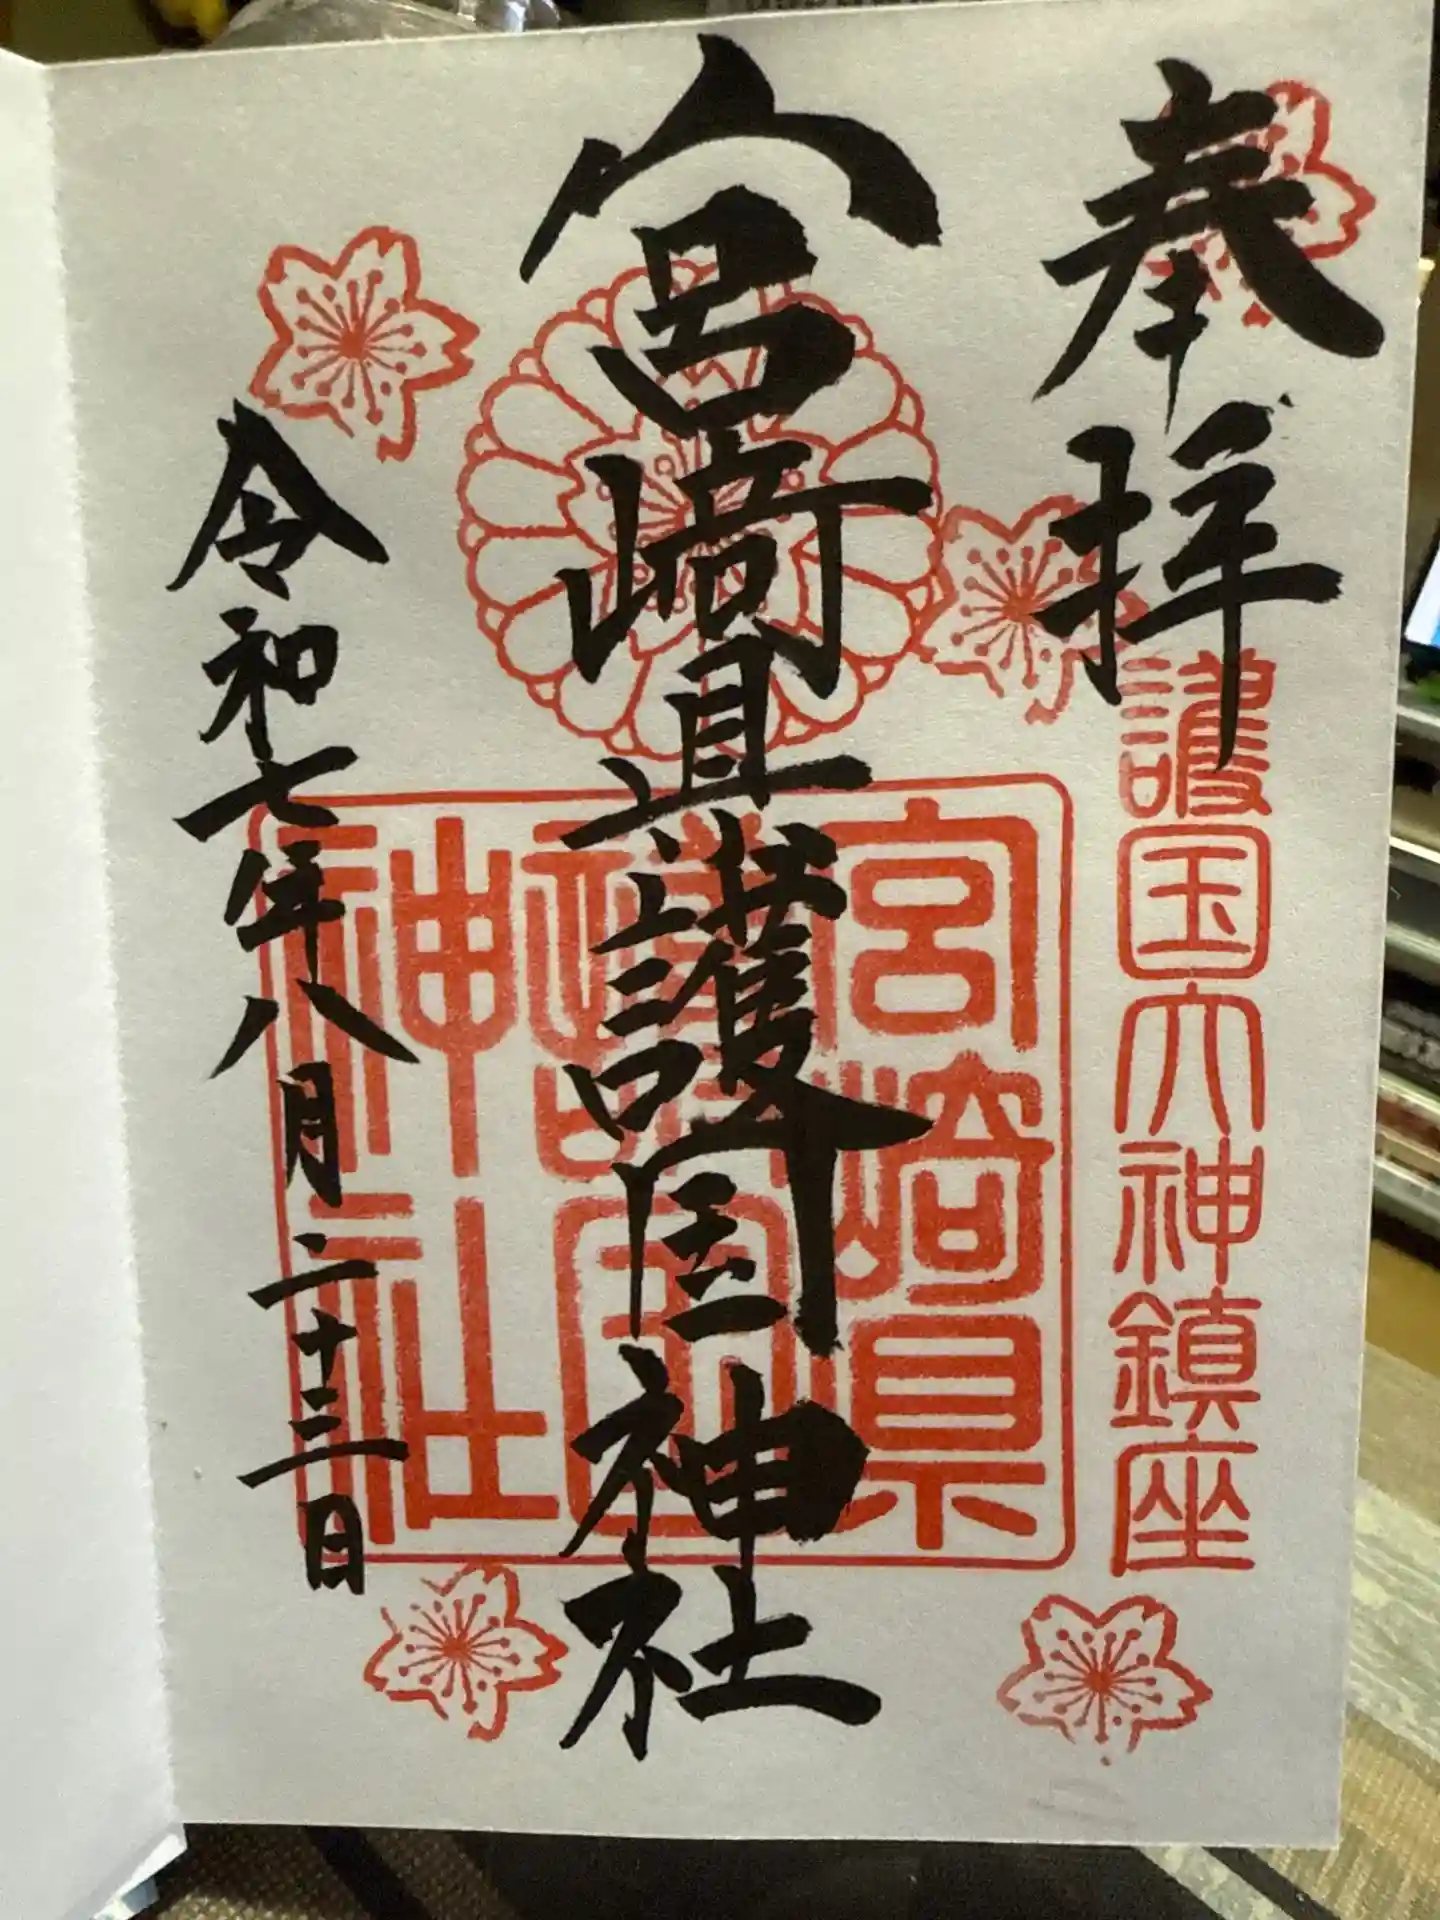 奉拝
護国大神鎮座
宮崎縣護国神社
宮崎県護国神社
令和七年八月二十三日